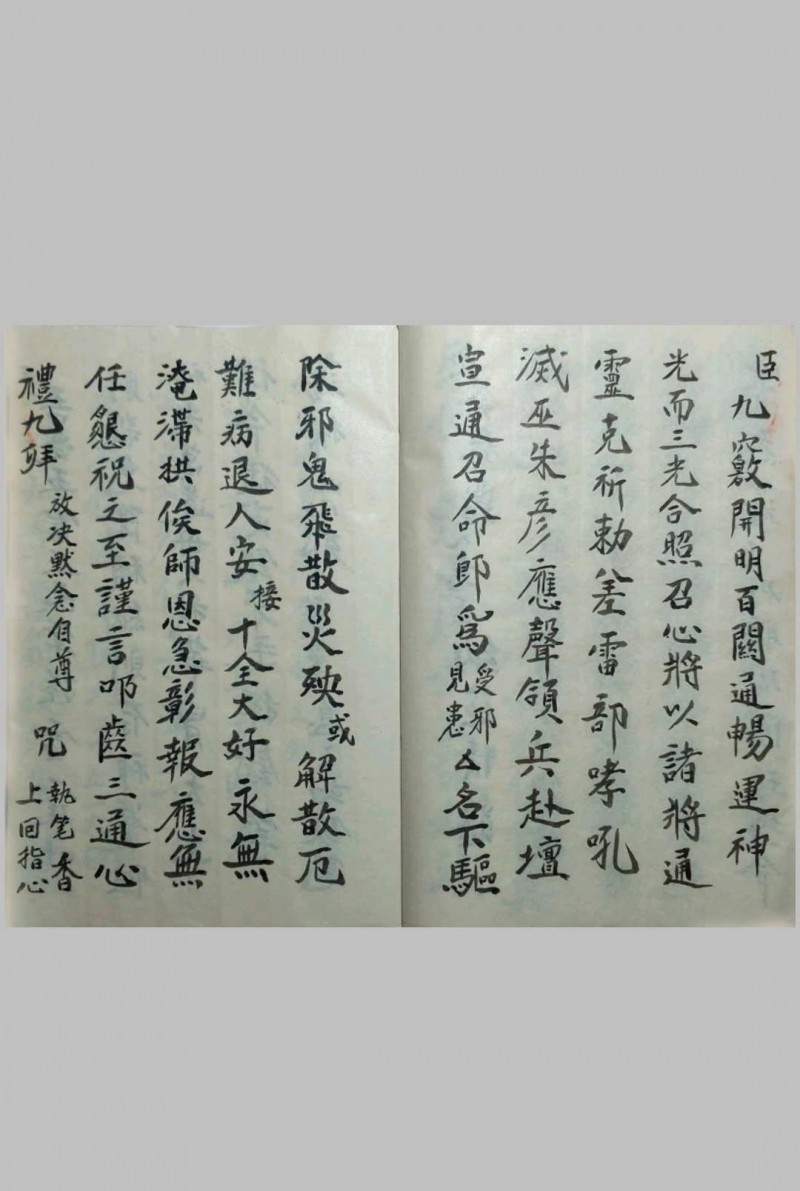 臣九竅開明百關通暢運神
光而三光合照召心將以諸將通
靈克祈勅差雷部哮吼
滅巫朱彦應聲領兵赴壇
宣通召命即爲受邪見患厶名下驅
除邪鬼飛散災殃或解散厄
難病退人安接十全大好永無
淹滯拱俟師恩急彰報應無
任懇祝之至謹言叩齒三通心
禮九拜放决黙念自尊咒執笔香上回指心